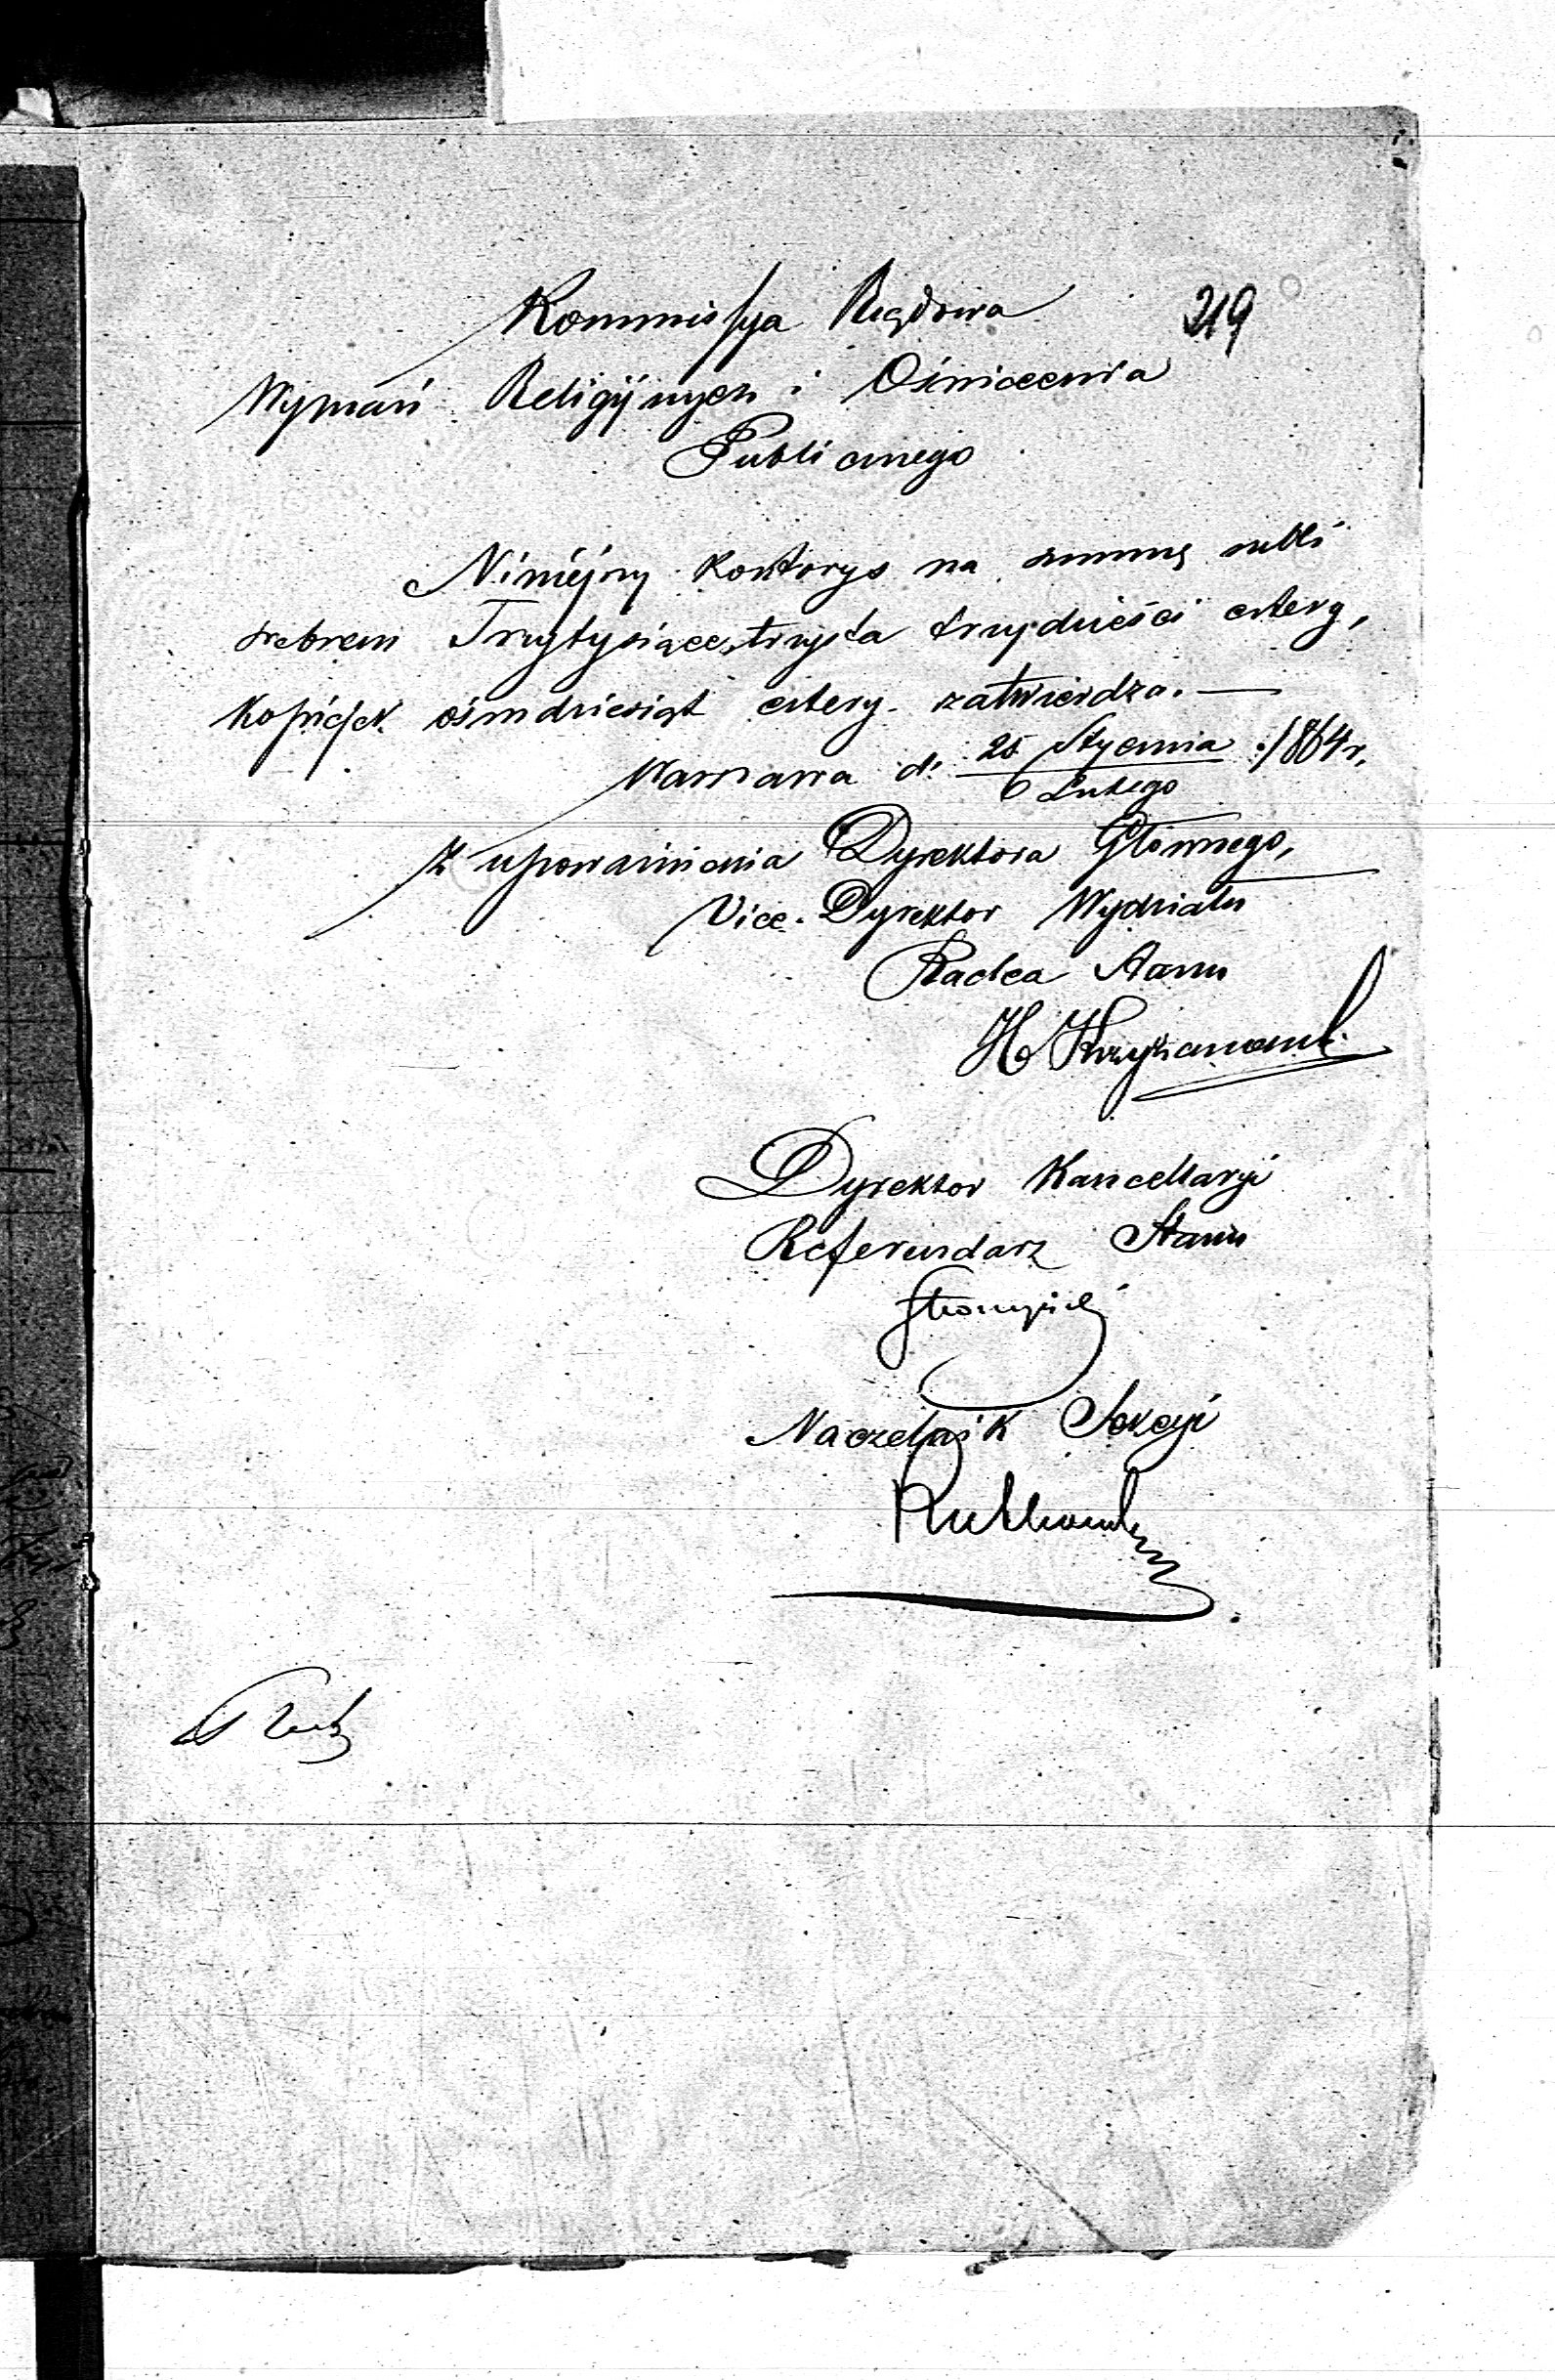 219
Kommissya Rządowa
Wyznań Religijnych i Oświecenia
Publicznego
Niniejszy kosztorys na summę rubli
srebrem Trzytysiące, trzysta trzydzieści cztery,
kopiejek ośmdziesiąt cztery zatwierdza. —
Warszawa d. 25 Stycznia / 6 Lutego 1864 r.
Z upoważnienia Dyrektora Głównego,
Vice-Dyrektor Wydziału
Radca Stanu
H Krzyżanowski
Dyrektor Kancellaryi
Referendarz Stanu
Naczelnik Sekcyi